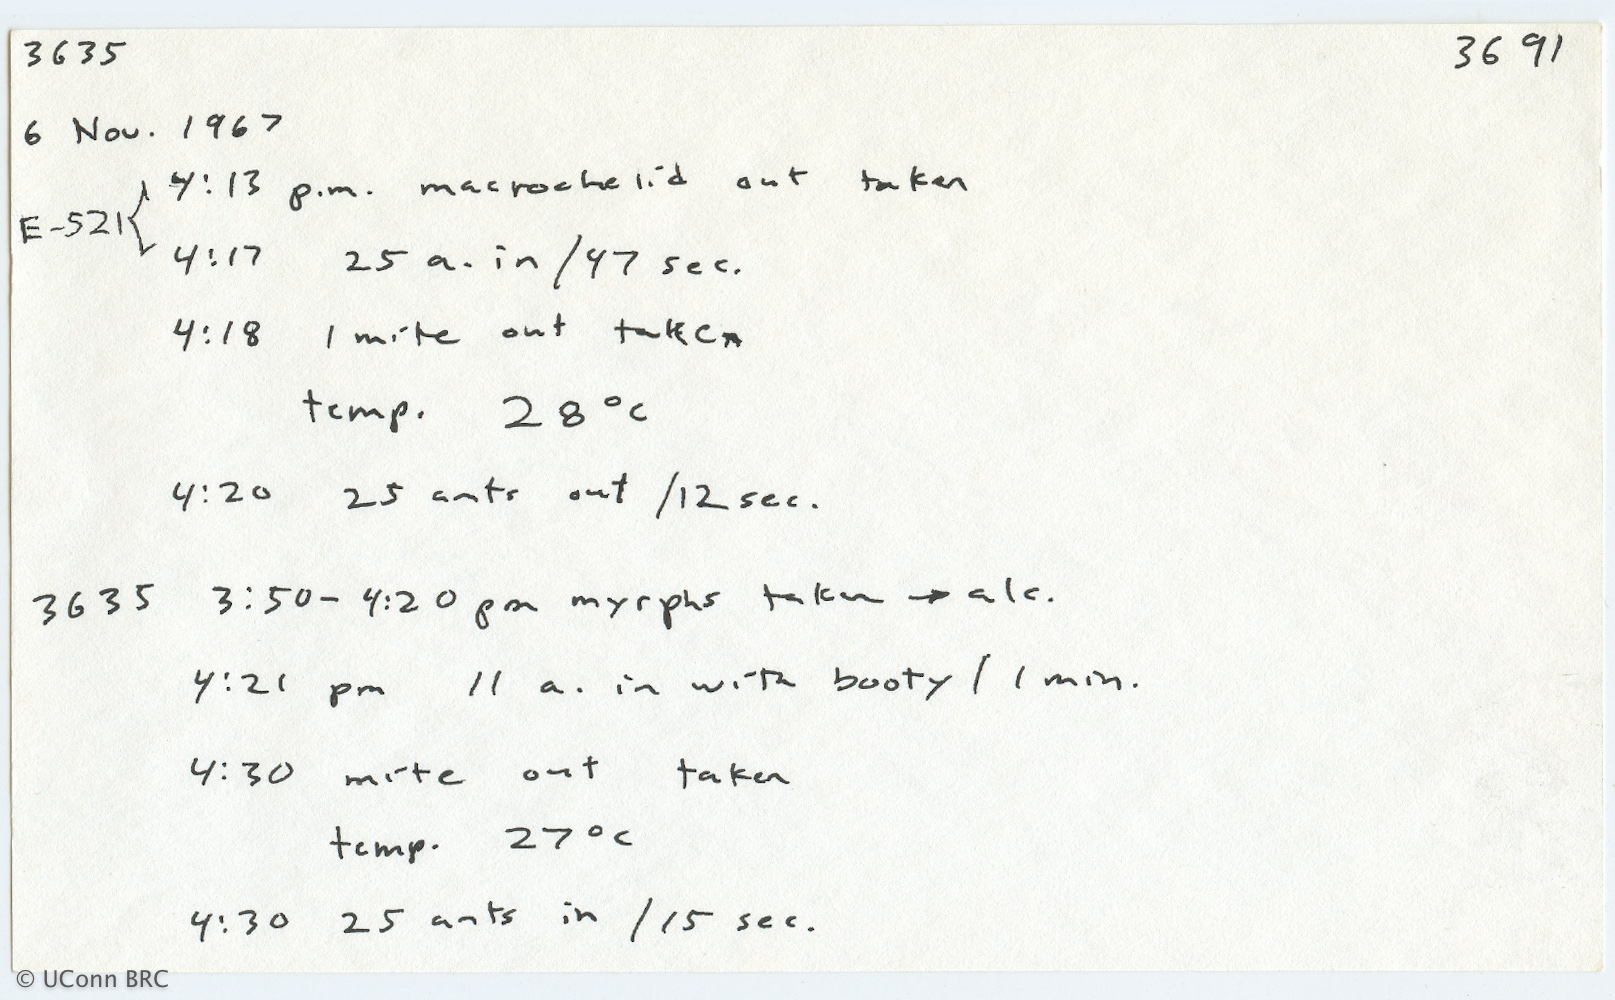 3635 3691
6 Nov. 1967
E-521 { 4:13 p.m. macrochelid out taken
4:17 25 a. in /47 sec.
4:18 1 mite out taken
temp. 28°C
4:20 25 ants out /12 sec.
3635 3:50-4:20 pm myrphs taken → alc.
4:21 pm 11 a. in with booty / 1 min.
4:30 mite out taken
temp. 27°C
4:30 25 ants in /15 sec.
© UConn BRC